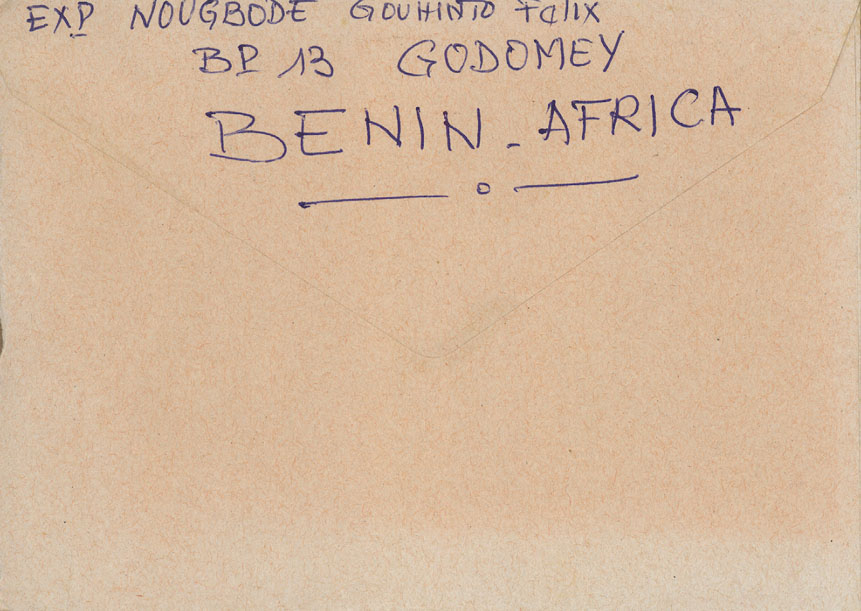 EXP NOUGBODE GOUHINTO Felix
BP 13 GODOMEY
BENIN - AFRICA